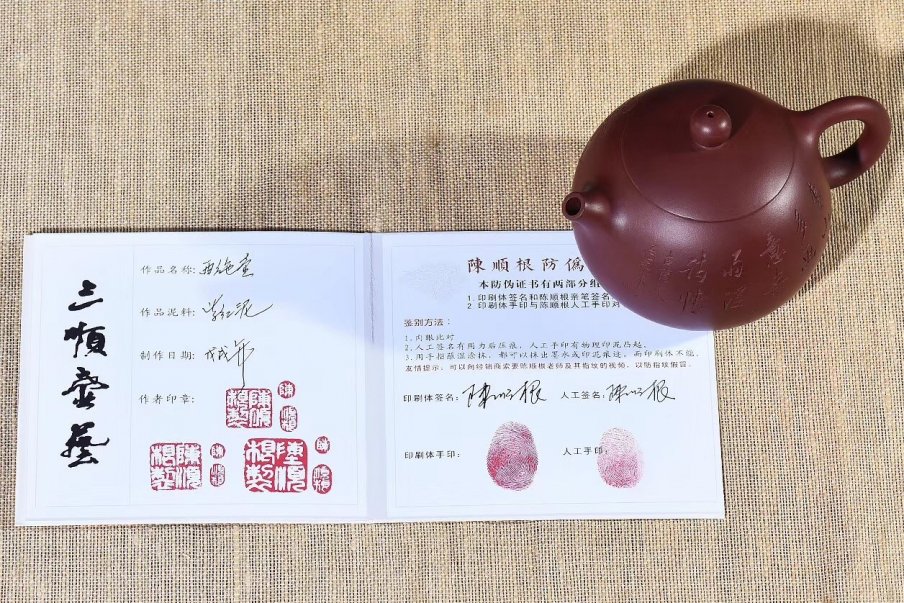 三順壺藝
作品名称: 西施壶
作品泥料: 紫红泥
制作日期: 戊戌年
作者印章:
陳順根製
陳順根製
陳順根製
陳順根防偽
本防伪证书有两部分组
1.印刷体签名和陈顺根亲笔签名
2.印刷体手印与陈顺根人工手印对
鉴别方法:
1.肉眼比对
2.人工签名有用力后压痕，人工手印有物理印泥凸起。
3.用手指蘸湿涂抹，都可以抹出墨水或印泥痕迹，而印刷体不能。
友情提示：可以向经销商索要陈顺根老师及其指纹的视频，以防指纹假冒。
印刷体签名: 陳顺根 人工签名: 陳顺根
印刷体手印: 人工手印: